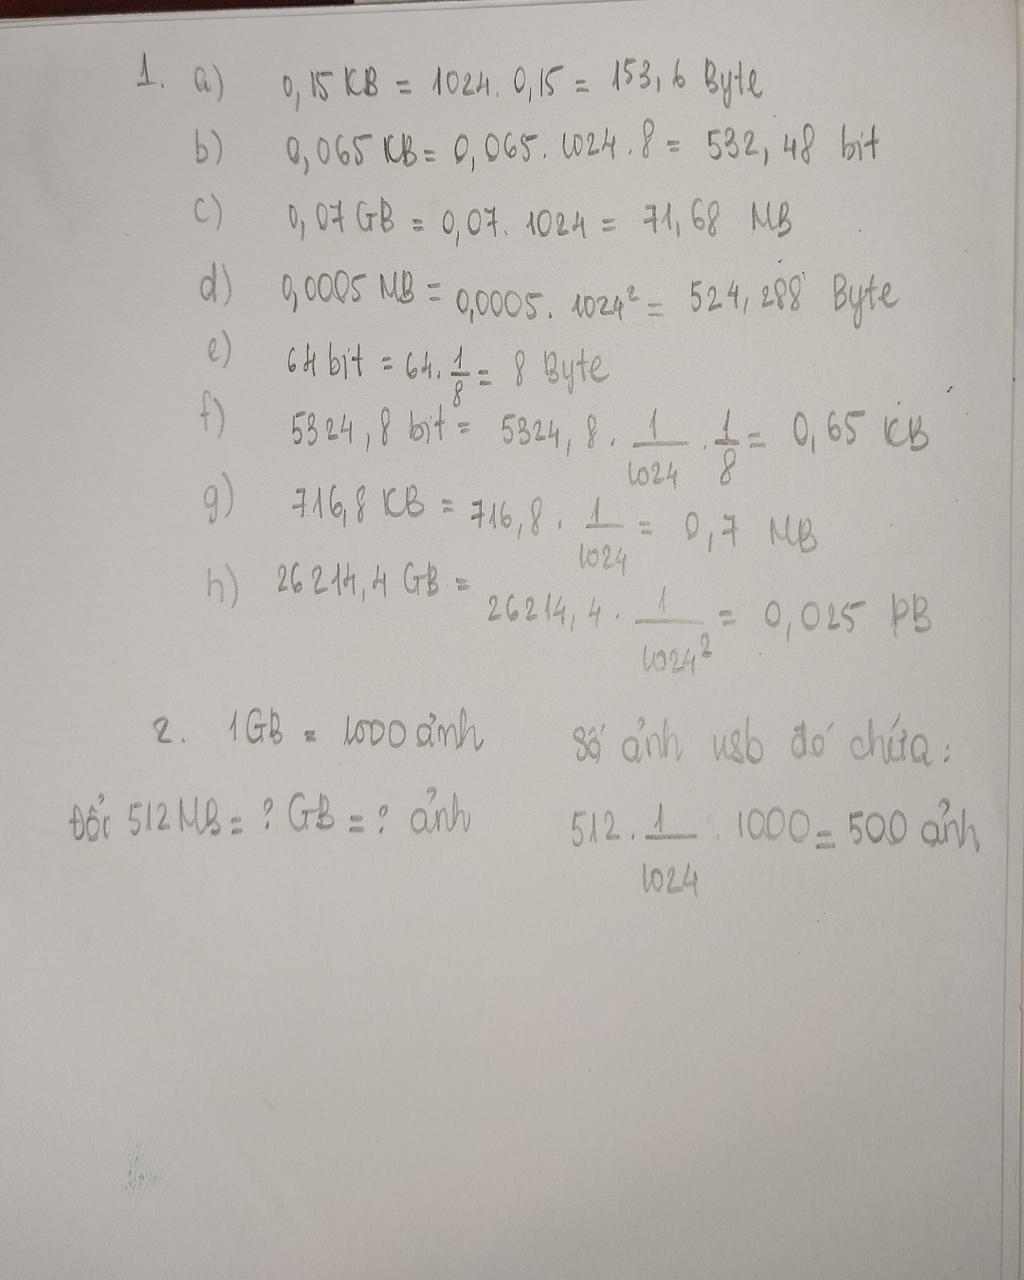 1. a) 0,15 KB = 1024. 0,15 = 153,6 Byte
b) 0,065 KB = 0,065. 1024. 8 = 532,48 bit
c) 0,07 GB = 0,07. 1024 = 71,68 MB
d) 0,0005 MB = 0,0005. 1024² = 524,288 Byte
e) 64 bit = 64. 1/8 = 8 Byte
f) 5324,8 bit = 5324,8. 1/1024 . 1/8 = 0,65 KB
g) 716,8 KB = 716,8. 1/1024 = 0,7 MB
h) 26214,4 GB = 26214,4. 1/1024² = 0,025 PB
2. 1GB = 1000 ảnh
Đổi 512MB = ? GB = ? ảnh
Số ảnh usb đó chứa:
512. 1/1024 . 1000 = 500 ảnh